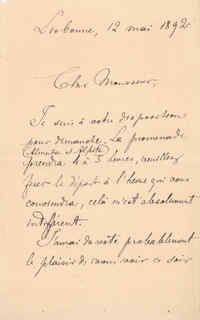 Lisbonne, 12 mai 1892
Cher Monsieur,
Je suis à votre disposition
pour dimanche. La promenade
prendra 4 à 5 heures, veuillez
fixer le départ à l'heure qui vous
conviendra, cela m'est absolument
indifférent.
J'aurai du reste probablement
le plaisir de vous voir ce soir